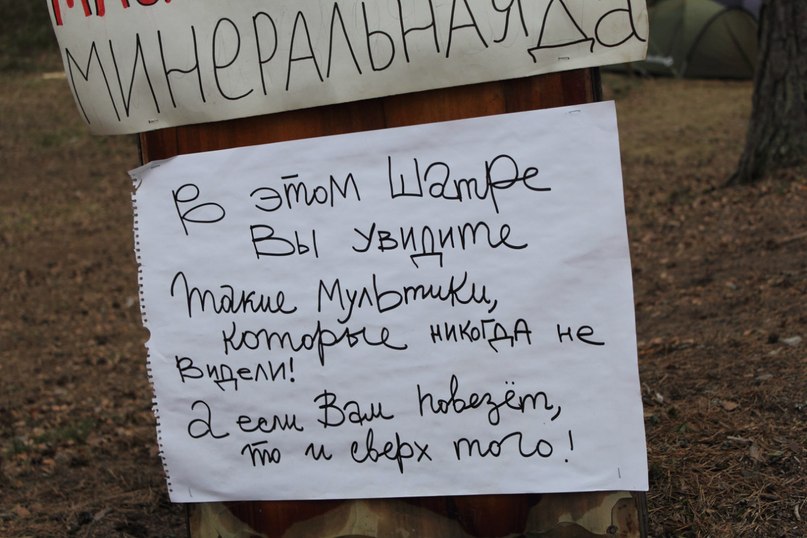 МИНЕРАЛЬНАЯ Да
В этом Шатре
Вы увидите
Такие Мультики,
которые никогда не
Видели!
А если Вам повезёт,
то и сверх того!